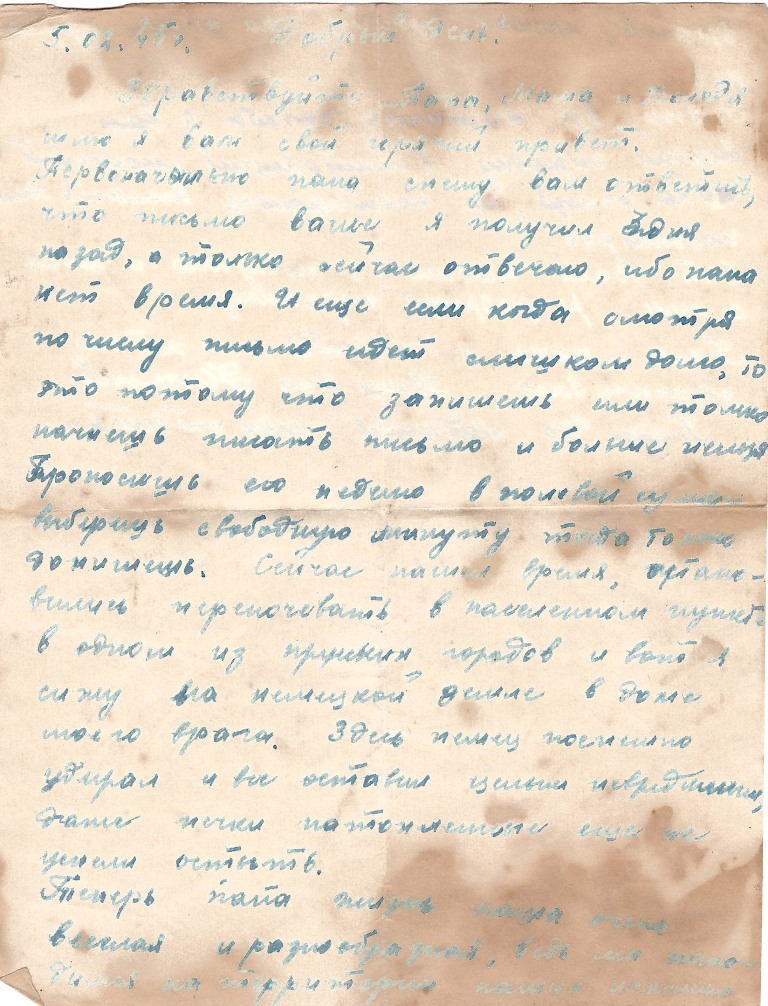 5.02.45г. Добрый день.
Здравствуйте Папа, Мама и Володя
шлю я вам свой горячий привет.
Первоначально папа спешу вам ответить,
что письмо ваше я получил 3 дня
назад, а только сейчас отвечаю, ибо папа
нет время. И еще если когда смотря
по числу письмо идет слишком долго, то
это потому что запишешь или только
начнешь писать письмо и больше нельзя
Проносишь его неделю в полевой
выберишь свободную минуту тогда только
допишешь. Сейчас время, остано-
вились переночевать в населенном пункте
в одном из городов и вот я
сижу на немецкой земле в доме
моего врага. Здесь немец поспешно
удирал и все оставил целым невредимым,
даже печки натопленные еще не
успели остыть.
Теперь папа жизнь наша очень
веселая и разнообразная, ведь мы нахо-
димся на территории